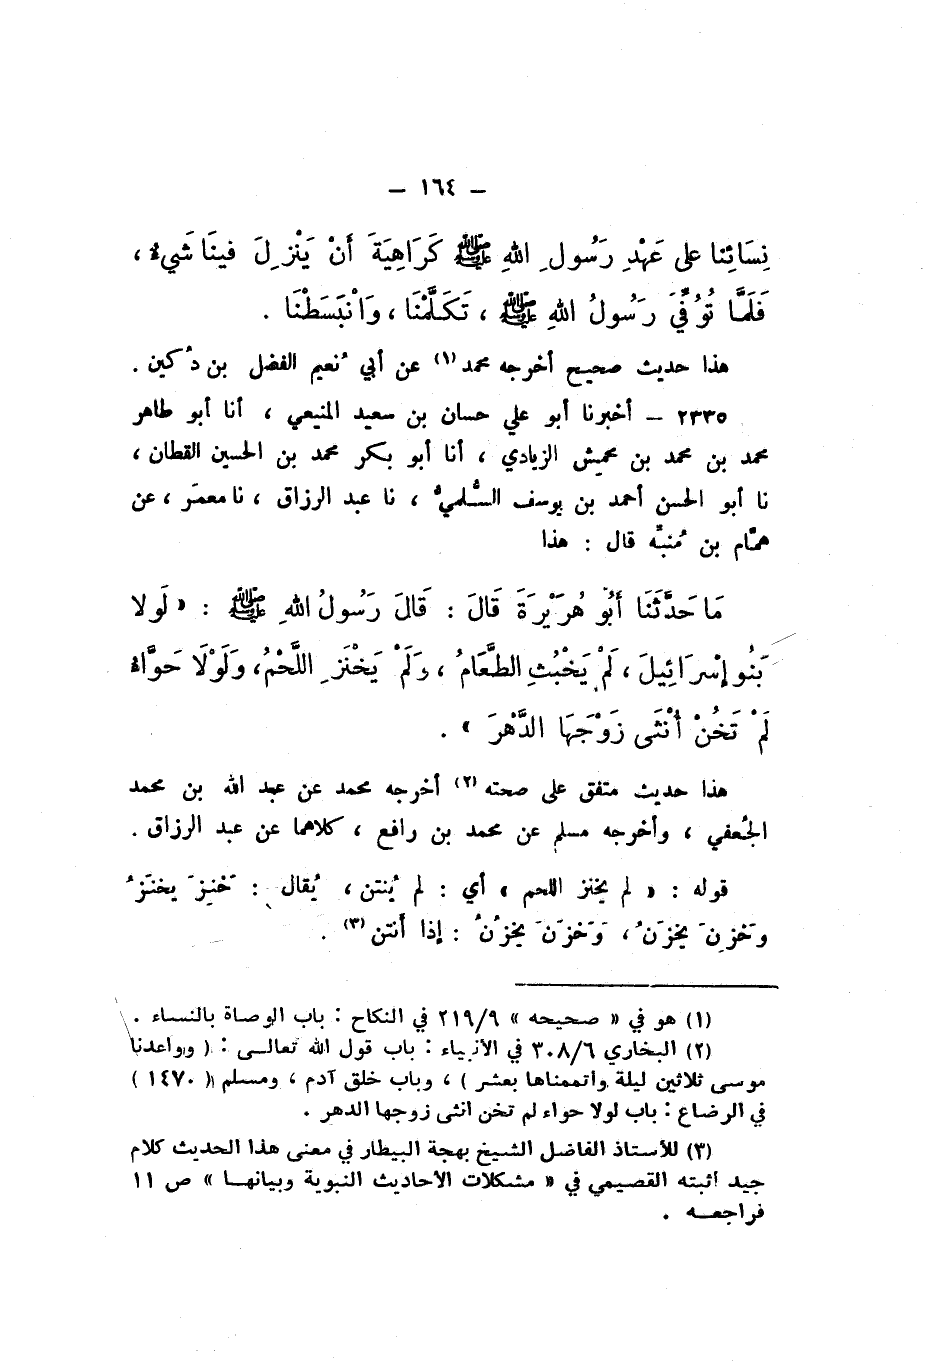 – ١٦٤ –
نِسَائِنا على عَهْدِ رَسُولِ اللهِ ﷺ كَرَاهِيَةَ أَنْ يَنْزِلَ فينَا شَيءٌ ،
فَلَمَّا تُوُفِّيَ رَسُولُ اللهِ ﷺ ، تَكَلَّمْنَا ، وَانْبَسَطْنَا .
هذا حديث صحيح أخرجه محمد (١) عن أبي نُعيم الفضل بن دُكين .
٢٣٣٥ – أخبرنا أبو علي حسان بن سعيد المنيعي ، أنا أبو طاهر
محمد بن محمد بن محمِش الزيادي ، أنا أبو بكر محمد بن الحسين القطان ،
نا أبو الحسن أحمد بن يوسف السُّلميُّ ، نا عبد الرزاق ، نا معمَر ، عن
همَّام بن مُنبِّه قال : هذا
مَا حَدَّثَنَا أَبُو هُرَيْرَةَ قَالَ : قَالَ رَسُولُ اللهِ ﷺ : « لَولا
بَنُو إِسْرَائِيلَ ، لَمْ يَخْبُثِ الطَّعَامُ ، وَلَمْ يَخْنَزِ اللَّحْمُ ، وَلَوْلَا حَوَّاءُ
لَمْ تَخُنْ أُنْثَى زَوْجَهَا الدَّهْرَ » .
هذا حديث متفق على صحته (٢) أخرجه محمد عن عبد الله بن محمد
الجُعفي ، وأخرجه مسلم عن محمد بن رافع ، كلاهما عن عبد الرزاق .
قوله : « لم يخنز اللحم » أي : لم يُنتن ، يُقال : خَنِزَ يخنَزُ
وخَزِنَ يخزَنُ ، وَخزَنَ يخزُنُ : إذا أنتن (٣) .
(١) هو في « صحيحه » ٢١٩/٩ في النكاح : باب الوصاة بالنساء .
(٢) البخاري ٣٠٨/٦ في الأنبياء : باب قول الله تعالى : ( وواعدنا
موسى ثلاثين ليلة وأتممناها بعشر ) ، وباب خلق آدم ، ومسلم ( ١٤٧٠ )
في الرضاع : باب لولا حواء لم تخن انثى زوجها الدهر .
(٣) للأستاذ الفاضل الشيخ بهجة البيطار في معنى هذا الحديث كلام
جيد أثبته القصيمي في « مشكلات الأحاديث النبوية وبيانها » ص ١١
فراجعه .